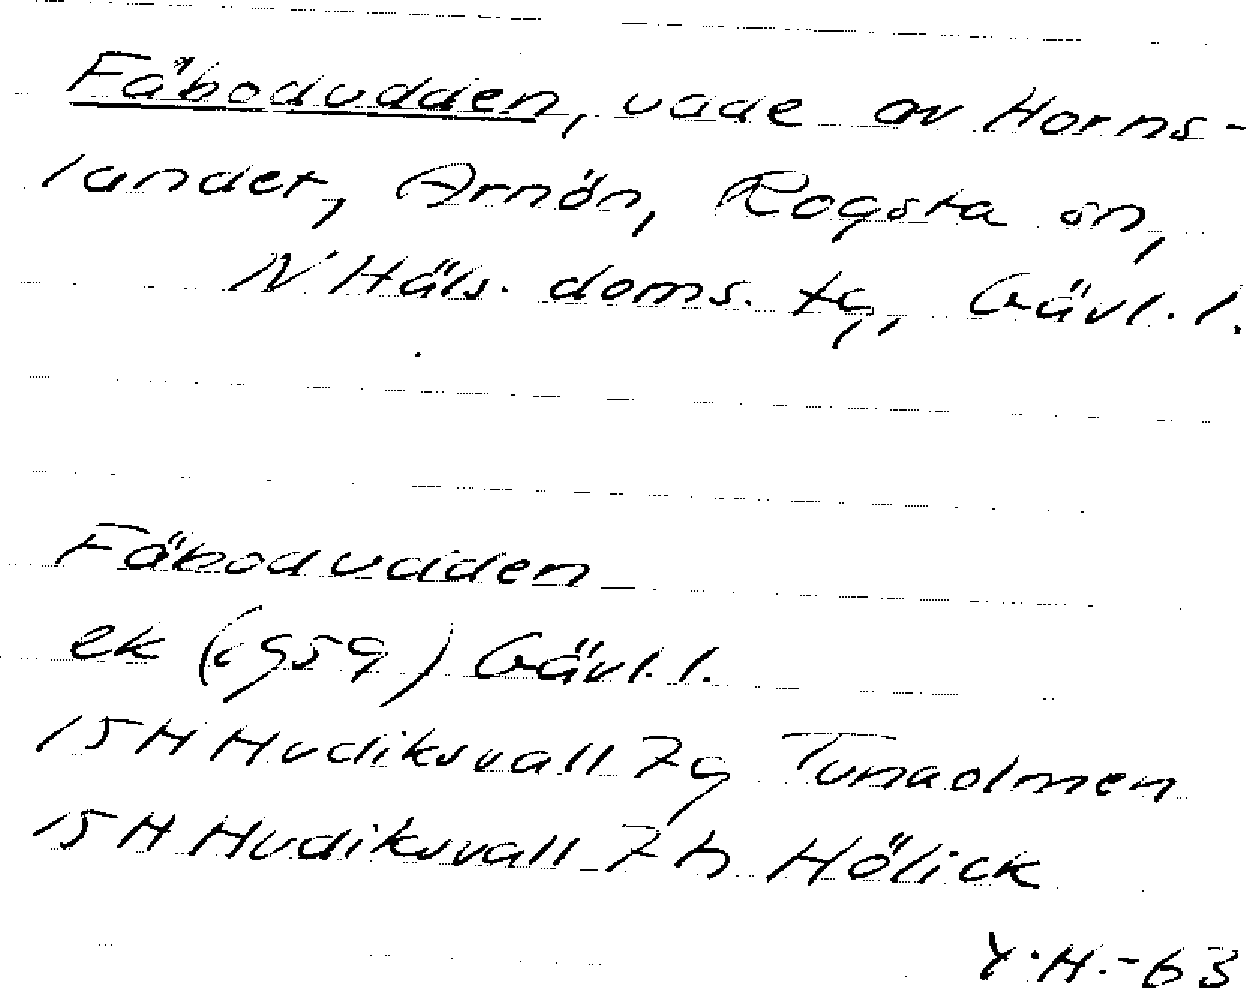 Fäbodudden, udde av Horns-
landet, Arnön, Rogsta sn,
N. Häls. doms. tg, Gävl. l.
Fäbodudden
ek (1959) Gävl. l.
15 H Hudiksvall 7g Tunaolmen
15 H Hudiksvall 7h Hölick
Y.H.-63